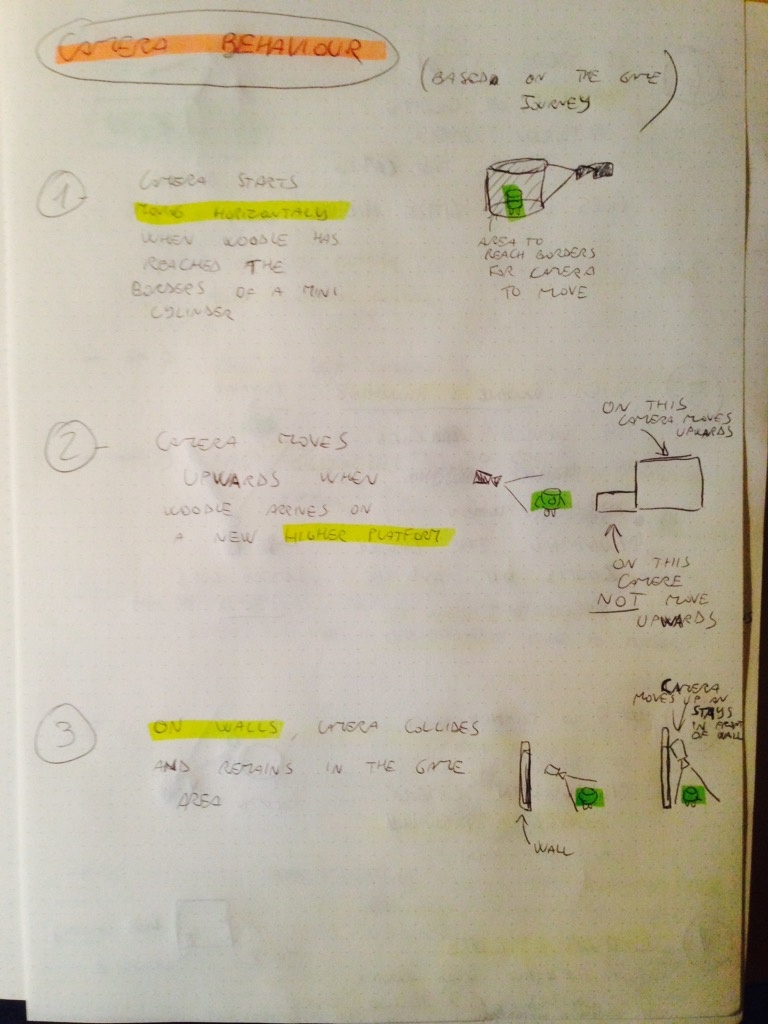 CAMERA BEHAVIOUR
(BASED ON THE GAME
JOURNEY)
1
CAMERA STARTS
MOVING HORIZONTALY
WHEN WOODLE HAS
REACHED THE
BORDERS OF A MINI
CYLINDER
AREA TO
REACH BORDERS
FOR CAMERA
TO MOVE
2
CAMERA MOVES
UPWARDS WHEN
WOODLE ARRIVES ON
A NEW HIGHER PLATFORM
ON THIS
CAMERA MOVES
UPWARDS
ON THIS
CAMERE
NOT MOVE
UPWARDS
3
ON WALLS, CAMERA COLLIDES
AND REMAINS IN THE GAME
AREA
WALL
CAMERA
MOVES UP AN
STAYS
IN FRONT
OF WALL